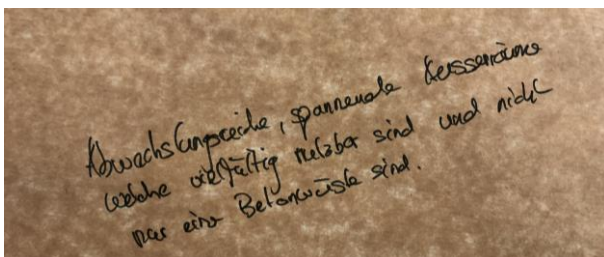 Abwechslungsreiche, spannende Aussenräume
welche vielfältig nutzbar sind und nicht
nur eine Betonwüste sind.